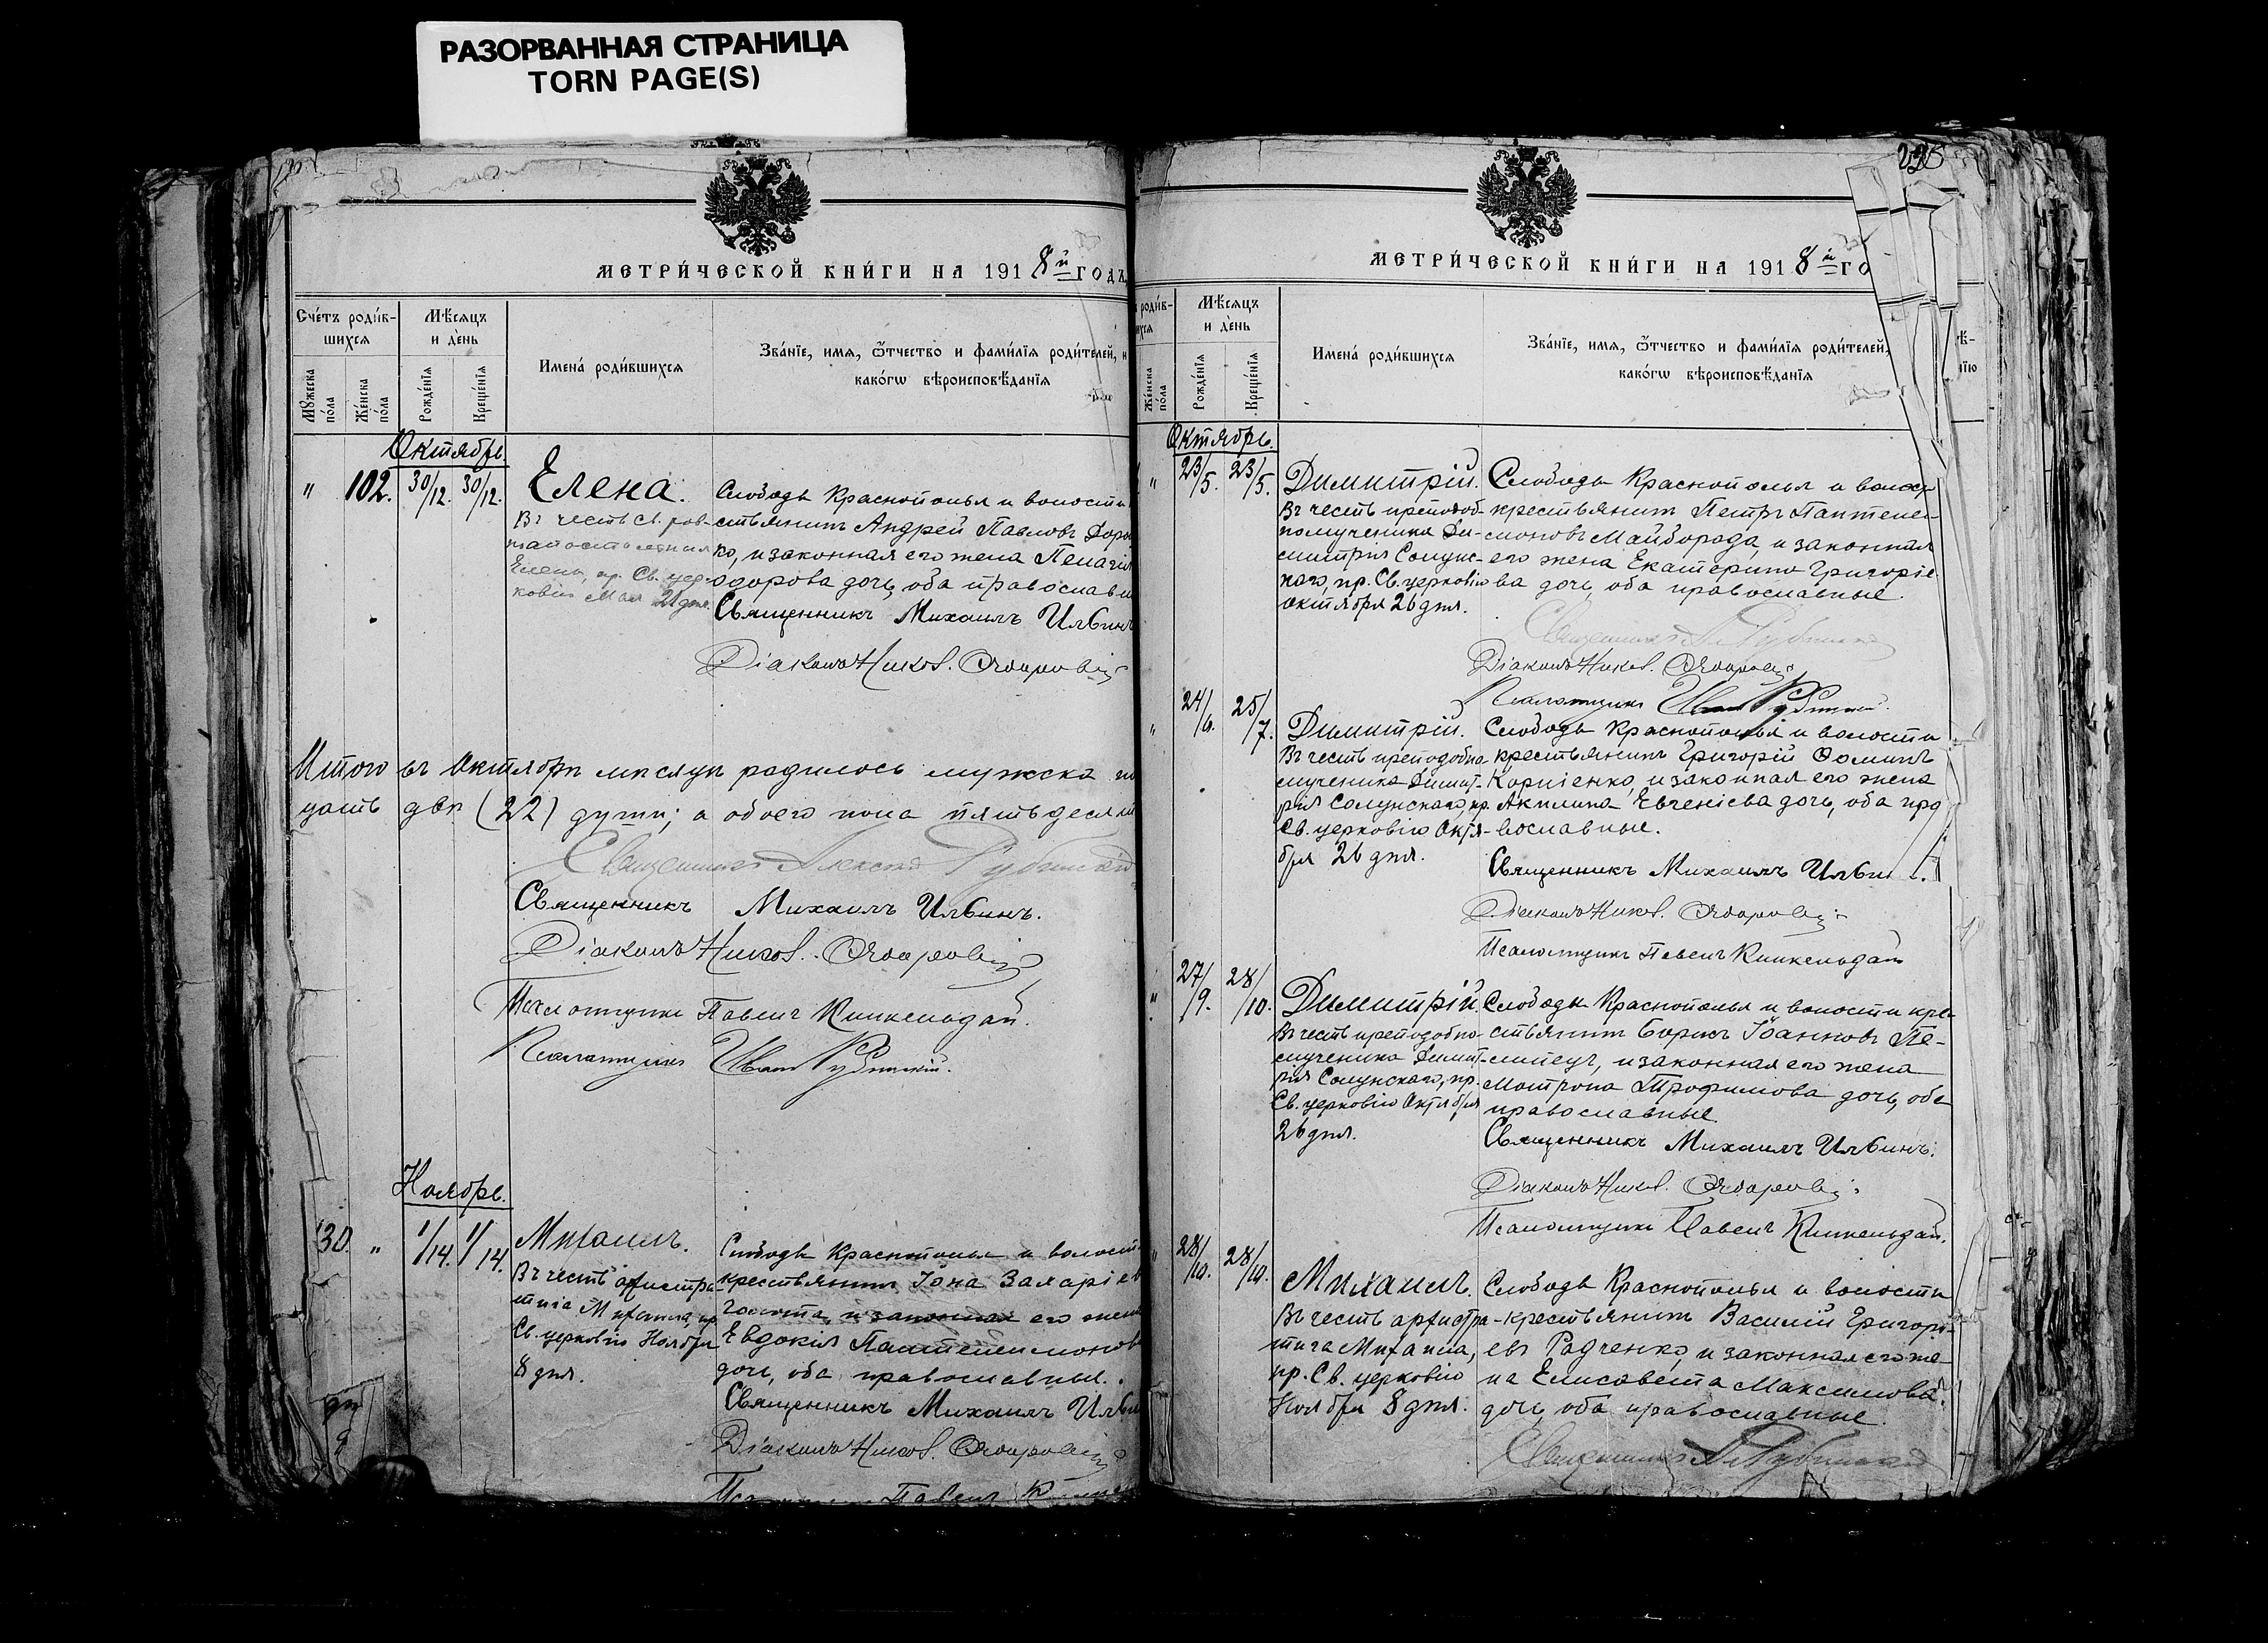 РАЗОРВАННАЯ СТРАНИЦА
TORN PAGE(S)
МЕТРИ́ЧЕСКОЙ КНИ́ГИ НА 1918й ГОДЪ
Сче́тъ роди́в-
шихсѧ
Мѣ́сѧцъ
и де́нь
Мꙋ́жеска
по́ла
Же́нска
по́ла
Рожде́нїѧ
Креще́нїѧ
Имена́ роди́вшихсѧ
Зва́нїе, имѧ, ѿтчество и фами́лїѧ роди́телей, и
како́гѡ вѣроисповѣ́данїѧ
Октябрь.
" 102. 30/12. 30/12. Елена.
Въ честь св. рав-
ноапостольныя
Елены, пр. Св. цер-
ковію Мая 21 дня.
Слободы Краснополья и волости
стьянинъ Андрей Павловъ Доро
ко, и законная его жена Пелагія
одорова дочь, оба православн
Священникъ Михаилъ Ильинъ
Діаконъ Никол.
Итого въ Октябрѣ мѣсяцѣ родилось мужска по
цать двѣ (22) души; а обоего пола пятьдесят
Священникъ Александ Рубинскій
Священникъ Михаилъ Ильинъ.
Діаконъ Никол.
Псаломщикъ Павелъ Кинкельдай.
Псаломщикъ Иван Рубинскій.
Ноябрь.
30. " 1/14. 1/14. Михаилъ.
Въ честь архистра-
тига Михаила, пр.
Св. церковію Ноября
8 дня.
Слободы Краснополья и волости
крестьянинъ Іона Захаріев
и законная его жена
Евдокія Пантелеимонов
дочь, оба православные.
Священникъ Михаилъ Ильин
Діаконъ Никол.
Павелъ
220
МЕТРИ́ЧЕСКОЙ КНИ́ГИ НА 1918й ГО
роди́в-
ихсѧ
Мѣ́сѧцъ
и де́нь
Же́нска
по́ла
Рожде́нїѧ
Креще́нїѧ
Имена́ роди́вшихсѧ
Зва́нїе, имѧ, ѿтчество и фами́лїѧ роди́телей,
како́гѡ вѣроисповѣ́данїѧ
Октябрь.
" 23/5. 23/5. Димитрій.
Въ честь преподоб-
номученика Ди-
митрія Солунс-
каго, пр. Св. церковію
октября 26 дня.
Слободы Краснополья и волос
крестьянинъ Петръ Пантеле-
моновъ Майборода, и законная
его жена Екатерина Григоріе
ва дочь, оба православные.
Священникъ А. Рубинскій
Діаконъ Никол.
Псаломщикъ Иван Рубинскій.
" 24/6. 25/7. Димитрій.
Въ честь преподобно-
мученика Димит-
рія Солунскаго, пр.
Св. церковію Октя-
бря 26 дня.
Слободы Краснополья и волости
крестьянинъ Григорій Ѳоминъ
Корніенко, и законная его жена
Акилина Евгеніева дочь, оба пра
вославные.
Священникъ Михаилъ Ильин
Діаконъ Никол.
Псаломщикъ Павелъ Кинкельдай
" 27/9. 28/10. Димитрій.
Въ честь преподобно-
мученика Димит-
рія Солунскаго, пр.
Св. церковію Октября
26 дня.
Слободы Краснополья и волости кре-
стьянинъ Борисъ Іоанновъ Пе-
и законная его жена
Матрона Трофимова дочь, оба
православные.
Священникъ Михаилъ Ильинъ.
Діаконъ Никол.
Псаломщикъ Павелъ Кинкельдай.
" 28/10. 28/10. Михаилъ.
Въ честь архистра-
тига Михаила,
пр. Св. церковію
Ноября 8 дня.
Слободы Краснополья и волости
крестьянинъ Василій Григорі-
евъ Радченко, и законная его же-
на Елисавета Максимова
дочь, оба православные.
Священникъ А. Рубинскій